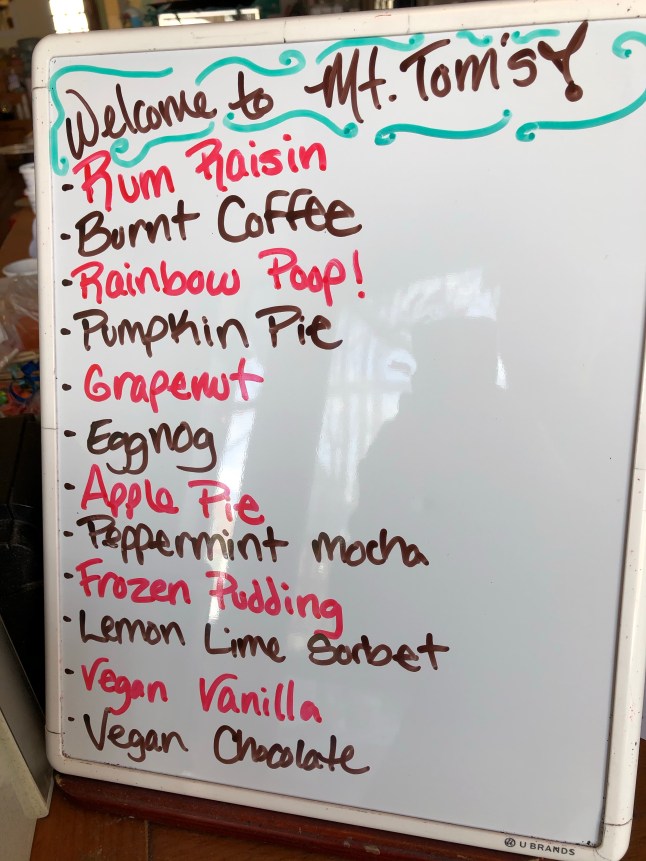 Welcome to Mt. Tom's!
· Rum Raisin
· Burnt Coffee
· Rainbow Poop!
· Pumpkin Pie
· Grapenut
· Eggnog
· Apple Pie
· Peppermint mocha
· Frozen Pudding
· Lemon Lime Sorbet
· Vegan Vanilla
· Vegan Chocolate
U BRANDS